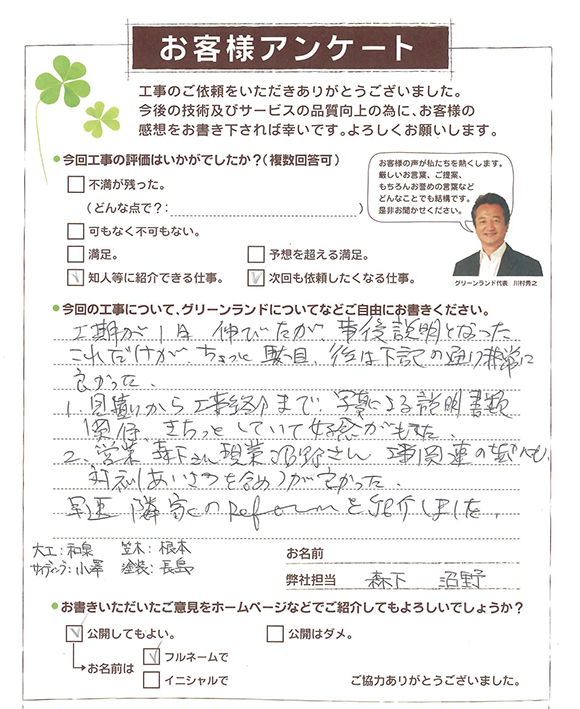 お客様アンケート
工事のご依頼をいただきありがとうございました。
今後の技術及びサービスの品質向上の為に、お客様の
感想をお書き下されば幸いです。よろしくお願いします。
今回工事の評価はいかがでしたか?(複数回答可)
不満が残った。
(どんな点で?: )
可もなく不可もない。
満足。 予想を超える満足。
知人等に紹介できる仕事。 次回も依頼したくなる仕事。
お客様の声が私たちを熱くします。
厳しいお言葉、ご提案、
もちろんお誉めの言葉など
どんなことでも結構です。
是非お聞かせください。
グリーンランド代表 川村秀之
今回の工事について、グリーンランドについてなどご自由にお書きください。
工期が1日伸びたが事後説明となった
これだけが、ちょっと駄目、後は下記の通り非常に
良かった。
1. 見積りから工事終了まで、写真による説明書類
きちっとしていて好感がもてた。
2. 営業 森下さん 現業 沼野さん 工事関連の
対応(あいさつを含め)が良かった。
早速 隣家のReformを紹介しました。
大工:和泉 笠木:根本
サイディング:小澤 塗装:長島
お名前
弊社担当 森下 沼野
お書きいただいたご意見をホームページなどでご紹介してもよろしいでしょうか?
公開してもよい。 公開はダメ。
お名前は フルネームで
イニシャルで
ご協力ありがとうございました。